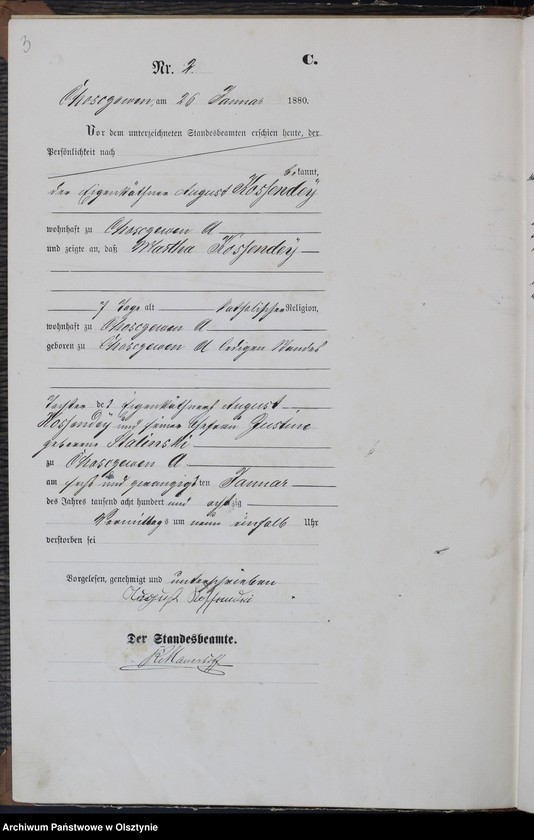 3
C.
Nr. 2.
Choszczewen, am 26 Januar 1880.
Vor dem unterzeichneten Standesbeamten erschien heute, der
Persönlichkeit nach
bekannt,
der Eigenkäthner August Kossendey
wohnhaft zu Choszczewen A
und zeigte an, daß Martha Kossendey
7 Tage alt katholischer Religion,
wohnhaft zu Choszczewen A
geboren zu Choszczewen A ledigen Standes
Tochter des Eigenkäthners August
Kossendey und seiner Ehefrau Justine
geborene Stalinski
zu Choszczewen A
am sechs und zwanzigsten Januar
des Jahres tausend acht hundert und achtzig
Vormittags um neun einhalb Uhr
verstorben sei
Vorgelesen, genehmigt und unterschrieben
August
Der Standesbeamte.
Archiwum Państwowe w Olsztynie